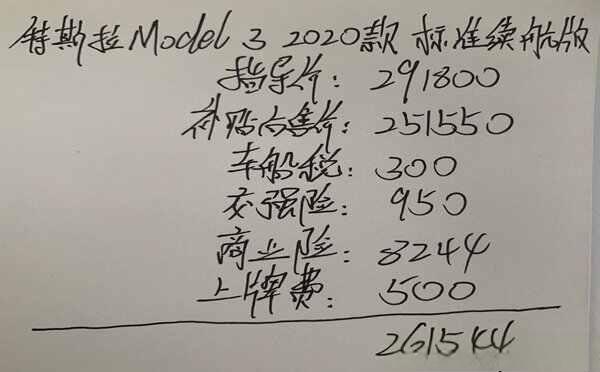 特斯拉Model 3 2020款 标准续航版
指导价: 291800
补贴后售价: 251550
车船税: 300
交强险: 950
商业险: 8244
上牌费: 500
261544